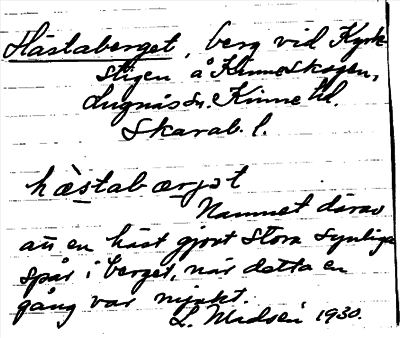 Hästaberget, berg vid Kyrk
stigen å Kinneskogen,
Lugnås sn. Kinne hd.
Skarab. l.
hästabærjet
Namnet därav
att en häst gjort stora synliga
spår i berget, när detta en
gång var mjukt.
L. Madsén 1930.